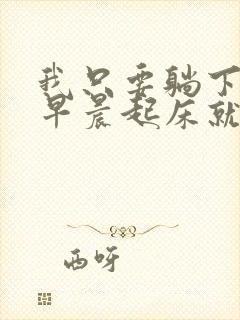 我只要躺下
早晨起床就
西呀